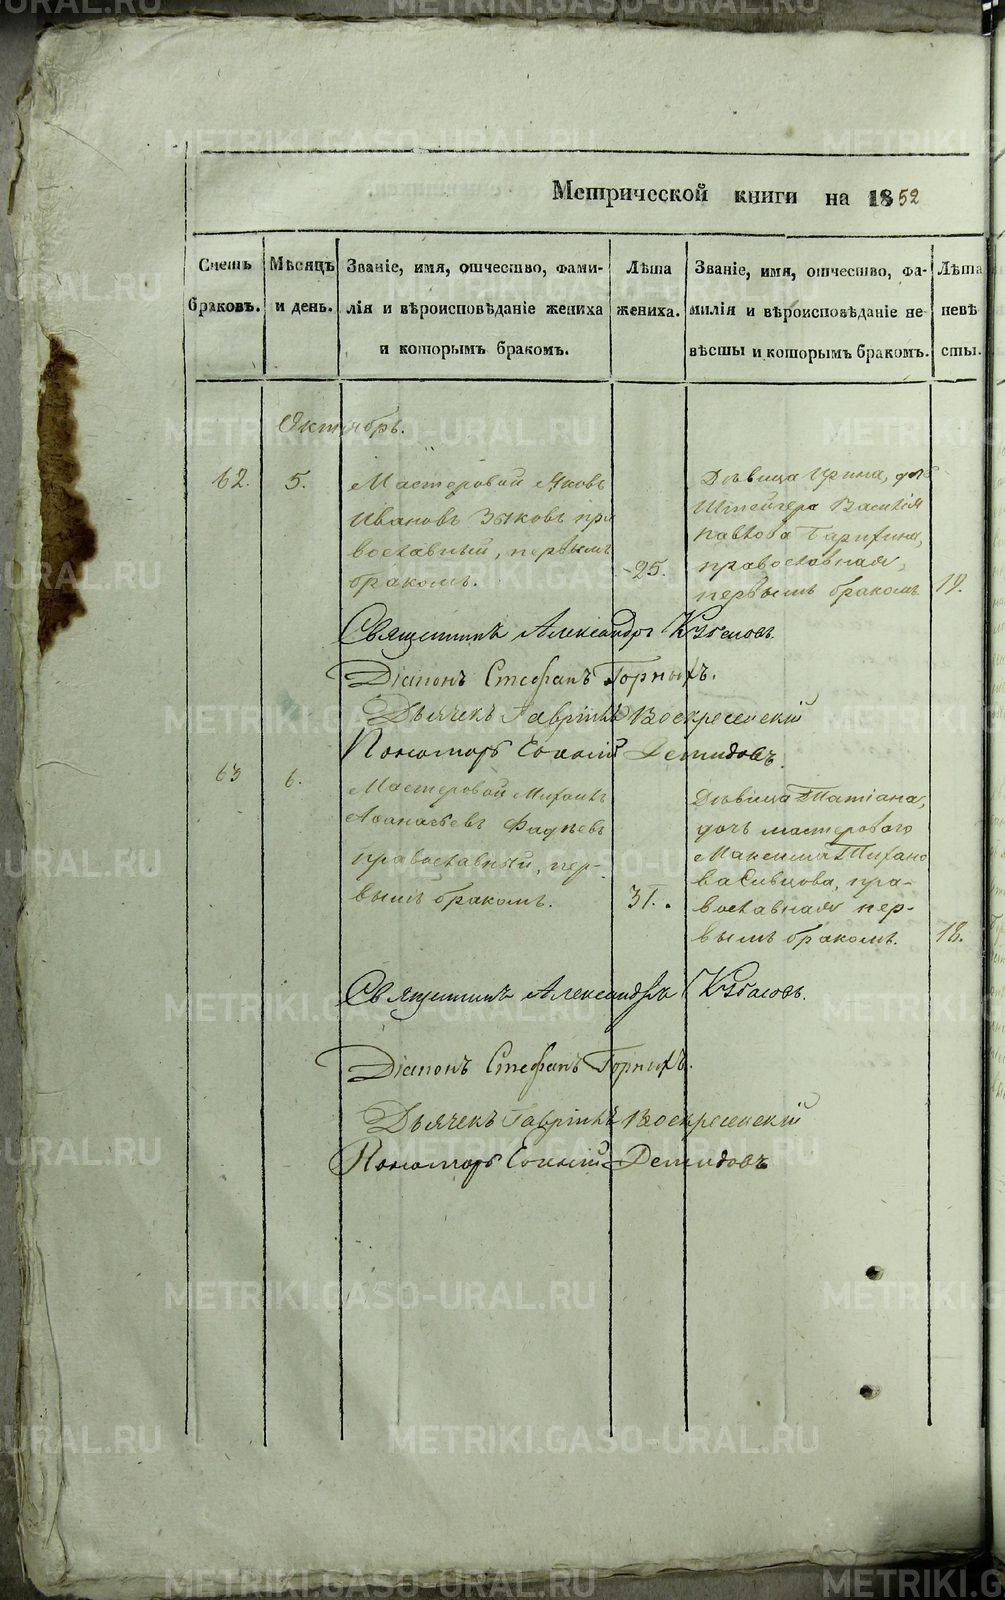 Метрической книги на 1852
Счетъ браковъ.
Мѣсяцъ и день.
Званіе, имя, отчество, фами-
лія и вѣроисповѣданіе жениха
и которымъ бракомъ.
Лѣта
жениха.
Званіе, имя, отчество, фа-
милія и вѣроисповѣданіе не
вѣсты и которымъ бракомъ.
Лѣта
невѣ
сты.
Октябрь.
62.
5.
Мастеровой Яковъ
Ивановъ Зыковъ пра
вославный, первымъ
бракомъ.
25.
Дѣвица Ирина, дочь
Штейгера Василія
Павлова
православная,
первымъ бракомъ
19.
Священникъ Александръ
Діаконъ Стефанъ Горныхъ.
Дьячекъ Гавріилъ Воскресенскій
Пономарь Демидовъ.
63
6.
Мастеровой Михаилъ
Аѳанасьевъ Фадѣевъ
православный, пер-
вымъ бракомъ.
31.
Дѣвица Татіана,
дочь мастероваго
Максима Тихано
ва Сивцова, пра-
вославная пер-
вымъ бракомъ.
18.
Священникъ Александръ
Діаконъ Стефанъ Горныхъ.
Дьячекъ Гавріилъ Воскресенскій
Пономарь Демидовъ
METRIKI.GASO-URAL.RU